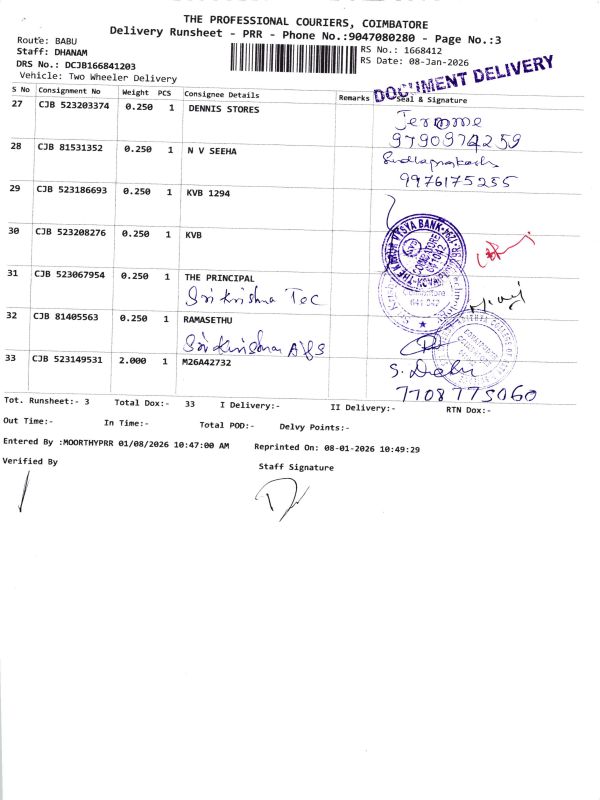 THE PROFESSIONAL COURIERS, COIMBATORE
Delivery Runsheet - PRR - Phone No.:9047080280 - Page No.:3
Route: BABU
Staff: DHANAM
DRS No.: DCJB166841203
Vehicle: Two Wheeler Delivery
RS No.: 1668412
RS Date: 08-Jan-2026
DOCUMENT DELIVERY
S No Consignment No Weight PCS Consignee Details Remarks Seal & Signature
27 CJB 523203374 0.250 1 DENNIS STORES
Jerome
9790974259
28 CJB 81531352 0.250 1 N V SEEHA
9976175255
29 CJB 523186693 0.250 1 KVB 1294
30 CJB 523208276 0.250 1 KVB
THE KARUR VYSYA BANK
31 CJB 523067954 0.250 1 THE PRINCIPAL
Sri Krishna Tec
32 CJB 81405563 0.250 1 RAMASETHU
Sri Krishna A/S
33 CJB 523149531 2.000 1 M26A42732
7708775060
Tot. Runsheet:- 3 Total Dox:- 33 I Delivery:- II Delivery:- RTN Dox:-
Out Time:- In Time:- Total POD:- Delvy Points:-
Entered By :MOORTHYPRR 01/08/2026 10:47:00 AM Reprinted On: 08-01-2026 10:49:29
Verified By Staff Signature